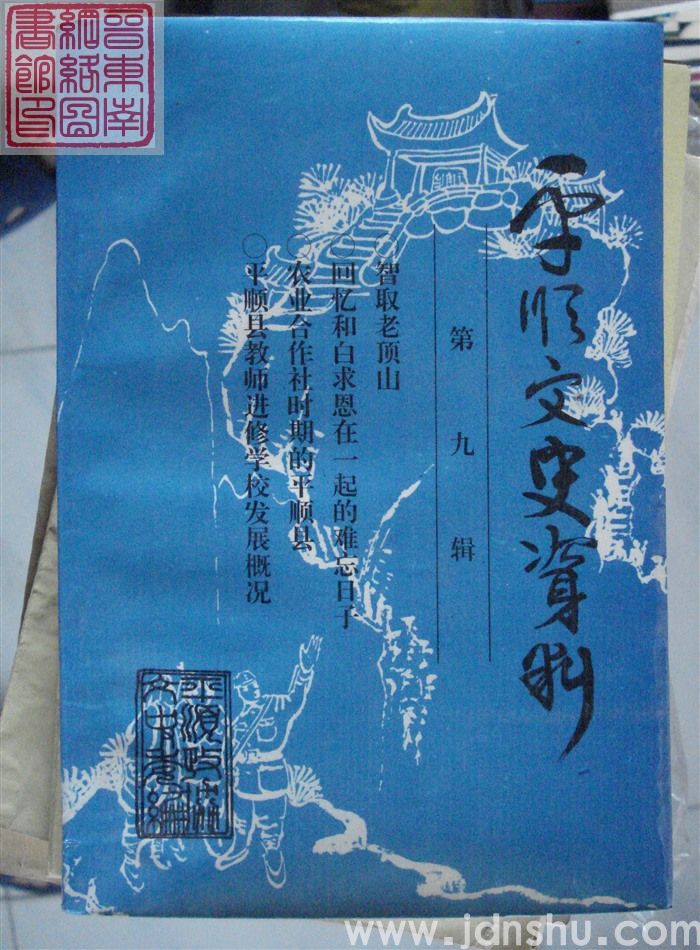 晋东南
網絡圖
書館印
平顺文史資料
第九辑
○智取老顶山
○回忆和白求恩在一起的难忘日子
○农业合作社时期的平顺县
○平顺县教师进修学校发展概况
平順政協
文史委編
www.jdnshu.com